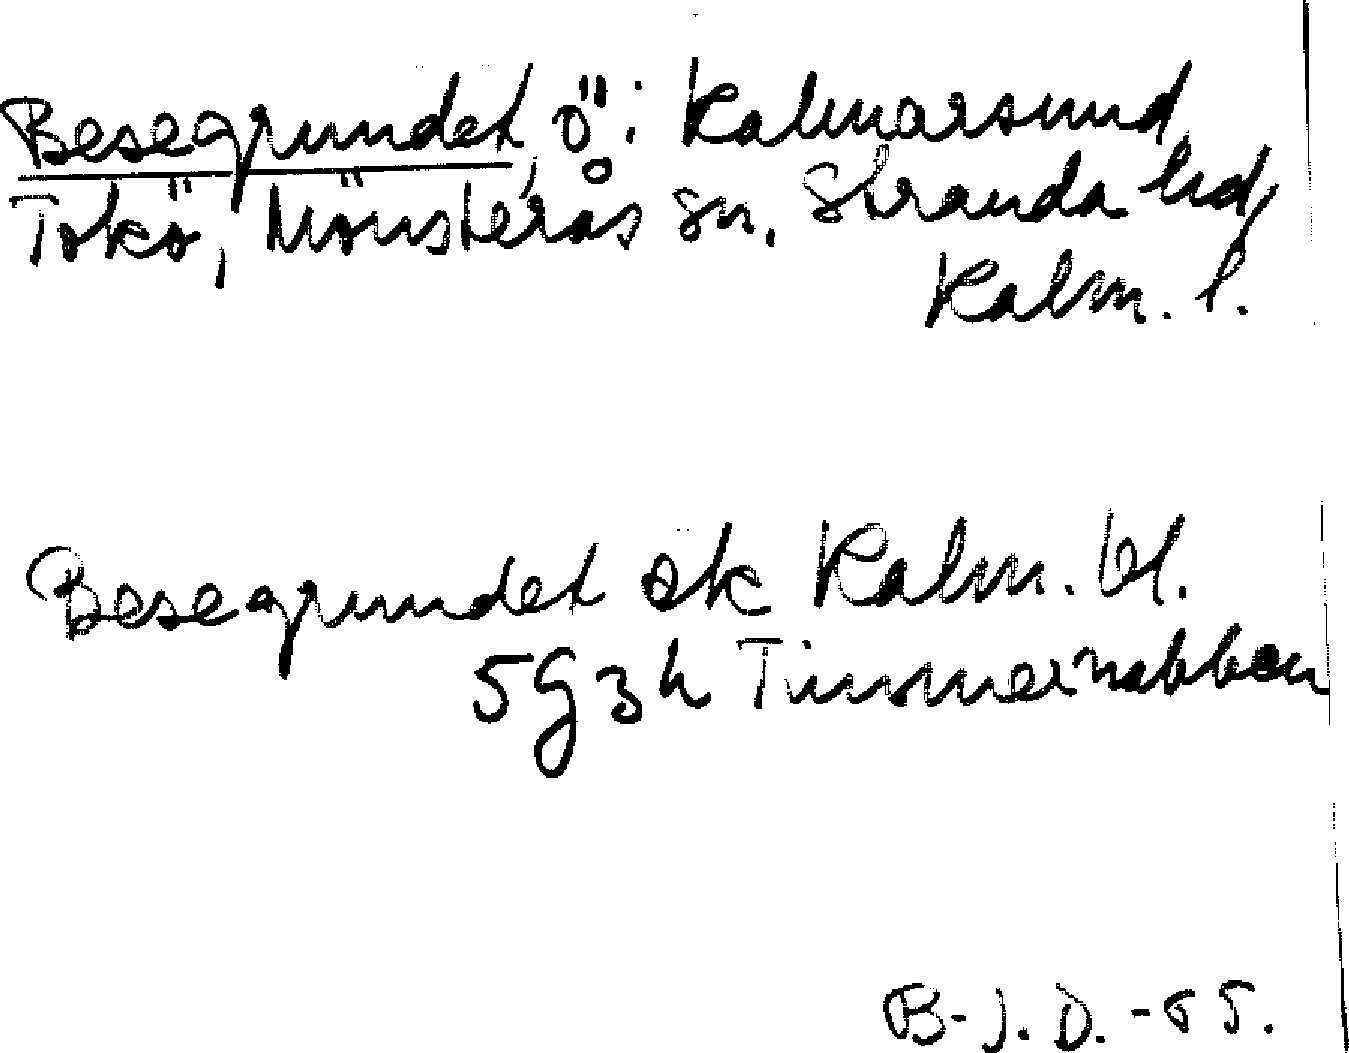 Besegrundet, ö i Kalmarsund,
Tokö, Mönsterås sn, Stranda hd,
Kalm. l.
Besegrundet ek Kalm. bl.
5G3h Timmernabben
B-J.D.-65.